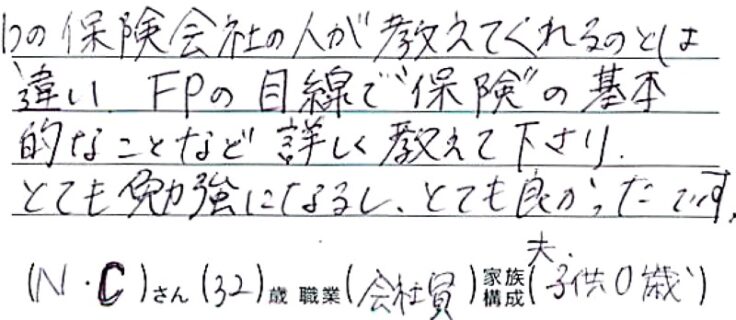 1つの保険会社の人が教えてくれるのとは
違い FPの目線で"保険"の基本
的なことなど詳しく教えて下さり、
とても勉強になるし、とても良かったです。
夫、
(N・C)さん(32)歳 職業(会社員)家族構成(子供0歳)